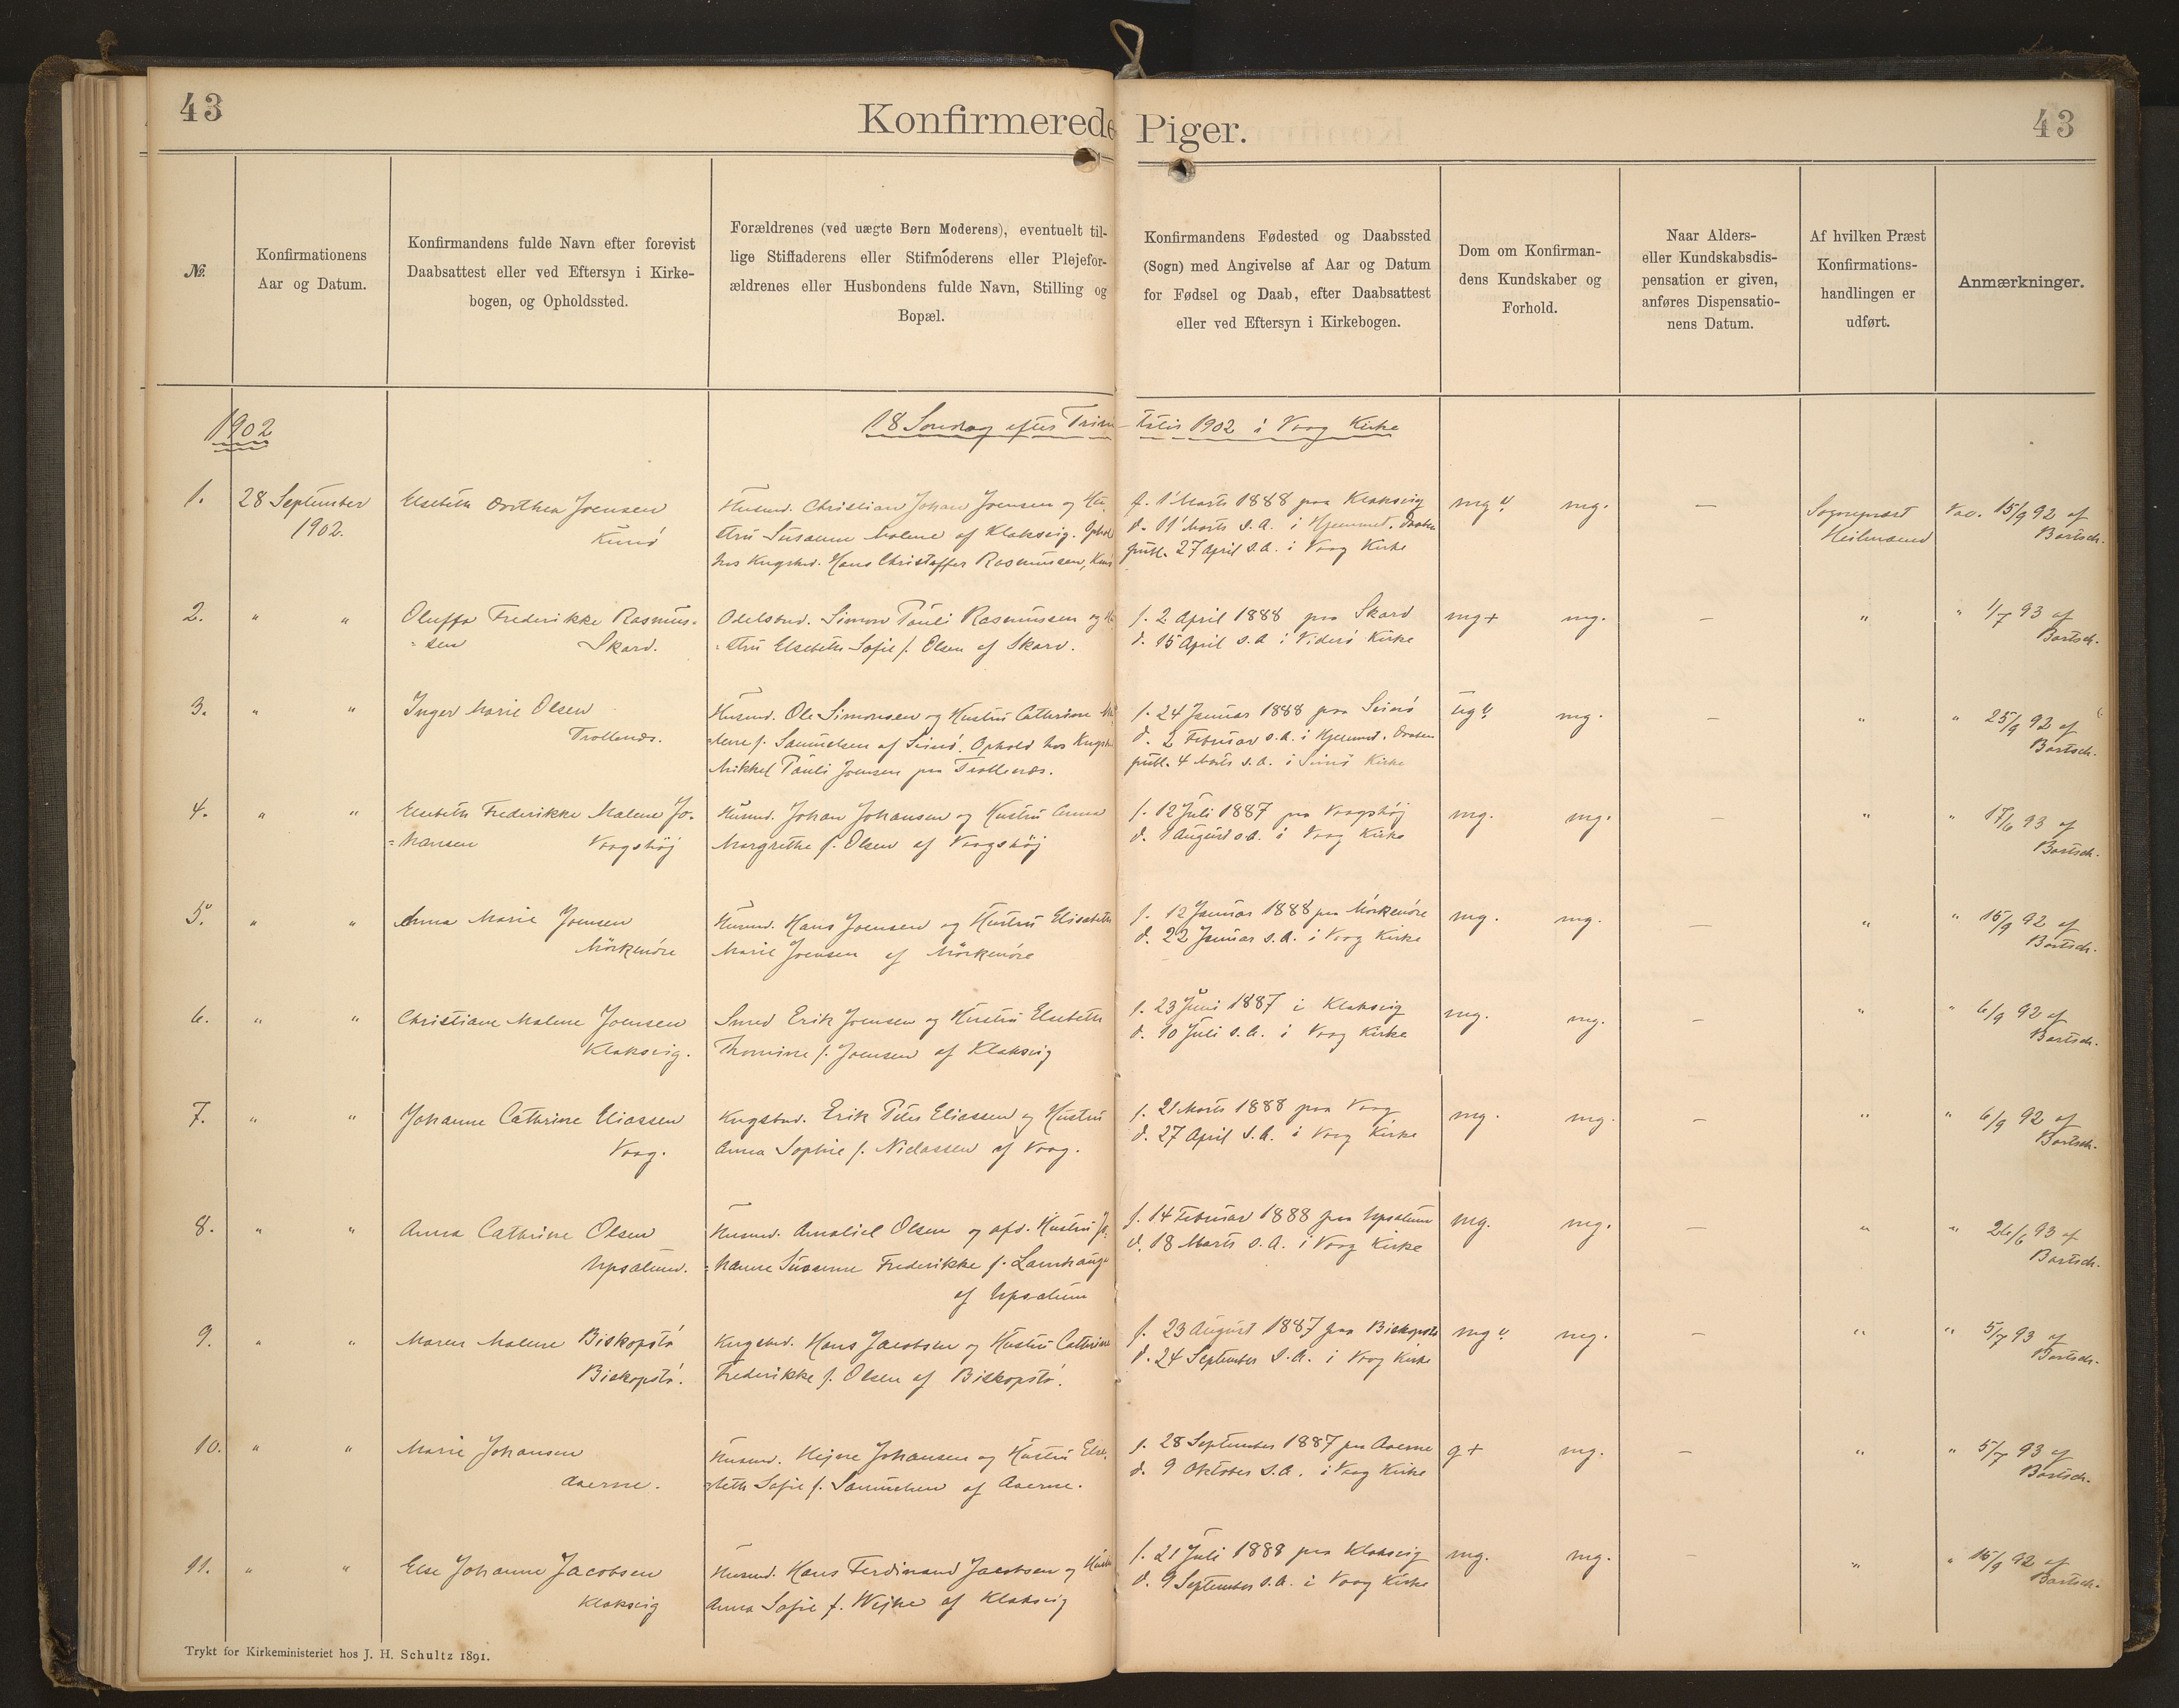 43
Konfirmerede Piger.
43
№
Konfirmationens
Aar og Datum.
Konfirmandens fulde Navn efter forevist
Daabsattest eller ved Eftersyn i Kirke-
bogen, og Opholdssted.
Forældrenes (ved uægte Børn Moderens), eventuelt til-
lige Stiffaderens eller Stifmóderens eller Plejefor-
ældrenes eller Husbondens fulde Navn, Stilling og
Bopæl.
Konfirmandens Fødested og Daabssted
(Sogn) med Angivelse af Aar og Datum
for Fødsel og Daab, efter Daabsattest
eller ved Eftersyn i Kirkebogen.
Dom om Konfirman-
dens Kundskaber og
Forhold.
Naar Alders-
eller Kundskabsdis-
pensation er given,
anføres Dispensatio-
nens Datum.
Af hvilken Præst
Konfirmations-
handlingen er
udført.
Anmærkninger.
1902
18 Søndag efter Trini-tatis 1902 i Vaag Kirke
1.
28 September
1902.
Elsebeth Dorthea Joensen
Kunö
Husmd. Christian Johan Joensen og Hu-
stru Susanne Malene af Klaksvig. Ophold
hos Kngsbd. Hans Christoffer Rasmussen, Kunö
f. 1 Marts 1888 paa Klaksvig
d. 11 Marts s.A. i Hjemmet. Daaben
publ. 27 April s.A. i Vaag Kirke
mg
mg.
—
Sognepræst
Heilmann
Vac. 15/9 92 af
Bartsch.
2. " "
Oluffa Frederikke Rasmus-
sen Skard.
Odelsbd. Simon Pauli Rasmussen og Hu-
stru Elsebeth Sofie f. Olsen af Skard.
f. 2 April 1888 paa Skard
d. 15 April s.A. i Viderö Kirke
mg+
mg.
—
"
" 1/7 93 af
Bartsch.
3. " "
Inger Marie Olsen
Trollenæs.
Husmd. Ole Simonsen og Hustru Cathrine Ma-
lene f. Samuelsen af Svinö. Ophold hos Kngsbd
Mikkel Pauli Joensen paa Trollenæs.
f. 24 Januar 1888 paa Svinö
d. 2 Februar s.A. i Hjemmet. Daaben
publ. 4 Marts s.A. i Svinö Kirke
ug
mg.
—
"
" 25/9 92 af
Bartsch.
4. " "
Elsebeth Frederikke Malene Jo-
hansen Vaagshöj
Husmd. Johan Johansen og Hustru Anna
Margrethe f. Olsen af Vaagshöj
f. 12 Juli 1887 paa Vaagshöj
d. 1 August s.A. i Vaag Kirke
mg.
mg.
—
"
" 17/6 93 af
Bartsch.
5. " "
Anna Marie Joensen
Mörkenöre
Husmd. Hans Joensen og Hustru Elisabeth
Marie Joensen af Mörkenöre
f. 12 Januar 1888 paa Mörkenöre
d. 22 Januar s.A. i Vaag Kirke
mg.
mg.
—
"
" 15/9 92 af
Bartsch.
6. " "
Christiane Malene Joensen
Klaksvig.
Smed Erik Joensen og Hustru Elsebeth
Thomine f. Joensen af Klaksvig
f. 23 Juni 1887 i Klaksvig
d. 10 Juli s.A. i Vaag Kirke
mg.
mg.
—
"
" 6/9 92 af
Bartsch.
7. " "
Johanne Cathrine Eliassen
Vaag.
Kngsbd. Erik Peter Eliassen og Hustru
Anna Sophie f. Niclassen af Vaag.
f. 21 Marts 1888 paa Vaag
d. 27 April s.A. i Vaag Kirke
mg.
mg.
—
"
" 6/9 92 af
Bartsch.
8. " "
Anna Cathrine Olsen
Upsalum.
Husmd. Amaliel Olsen og afd. Hustru Jo-
hanne Susanne Frederikke f. Lamhauge
af Upsalum
f. 14 Februar 1888 paa Upsalum
d. 18 Marts s.A. i Vaag Kirke
mg.
mg.
—
"
" 26/6 93 af
Bartsch.
9. " "
Maren Malene Biskopstö
Biskopstö.
Kngsbd. Hans Jacobsen og Hustru Cathrine
Frederikke f. Olsen af Biskopstö.
f. 23 August 1887 paa Biskopstö
d. 24 September s.A. i Vaag Kirke
mg
mg.
—
"
" 5/7 93 af
Bartsch.
10. " "
Marie Johansen
Aaerne.
Husmd. Hejne Johansen og Hustru Else-
beth Sofie f. Samuelsen af Aaerne.
f. 28 September 1887 paa Aaerne
d. 9 Oktober s.A. i Vaag Kirke
g+
mg.
—
"
" 5/7 93 af
Bartsch.
11. " "
Else Johanne Jacobsen
Klaksvig
Husmd. Hans Ferdinand Jacobsen og Hustru
Anna Sofie f. Wejhe af Klaksvig
f. 21 Juli 1888 paa Klaksvig
d. 9 September s.A. i Vaag Kirke
mg.
mg.
—
"
" 15/9 92 af
Bartsch.
Trykt for Kirkeministeriet hos J. H. Schultz 1891.